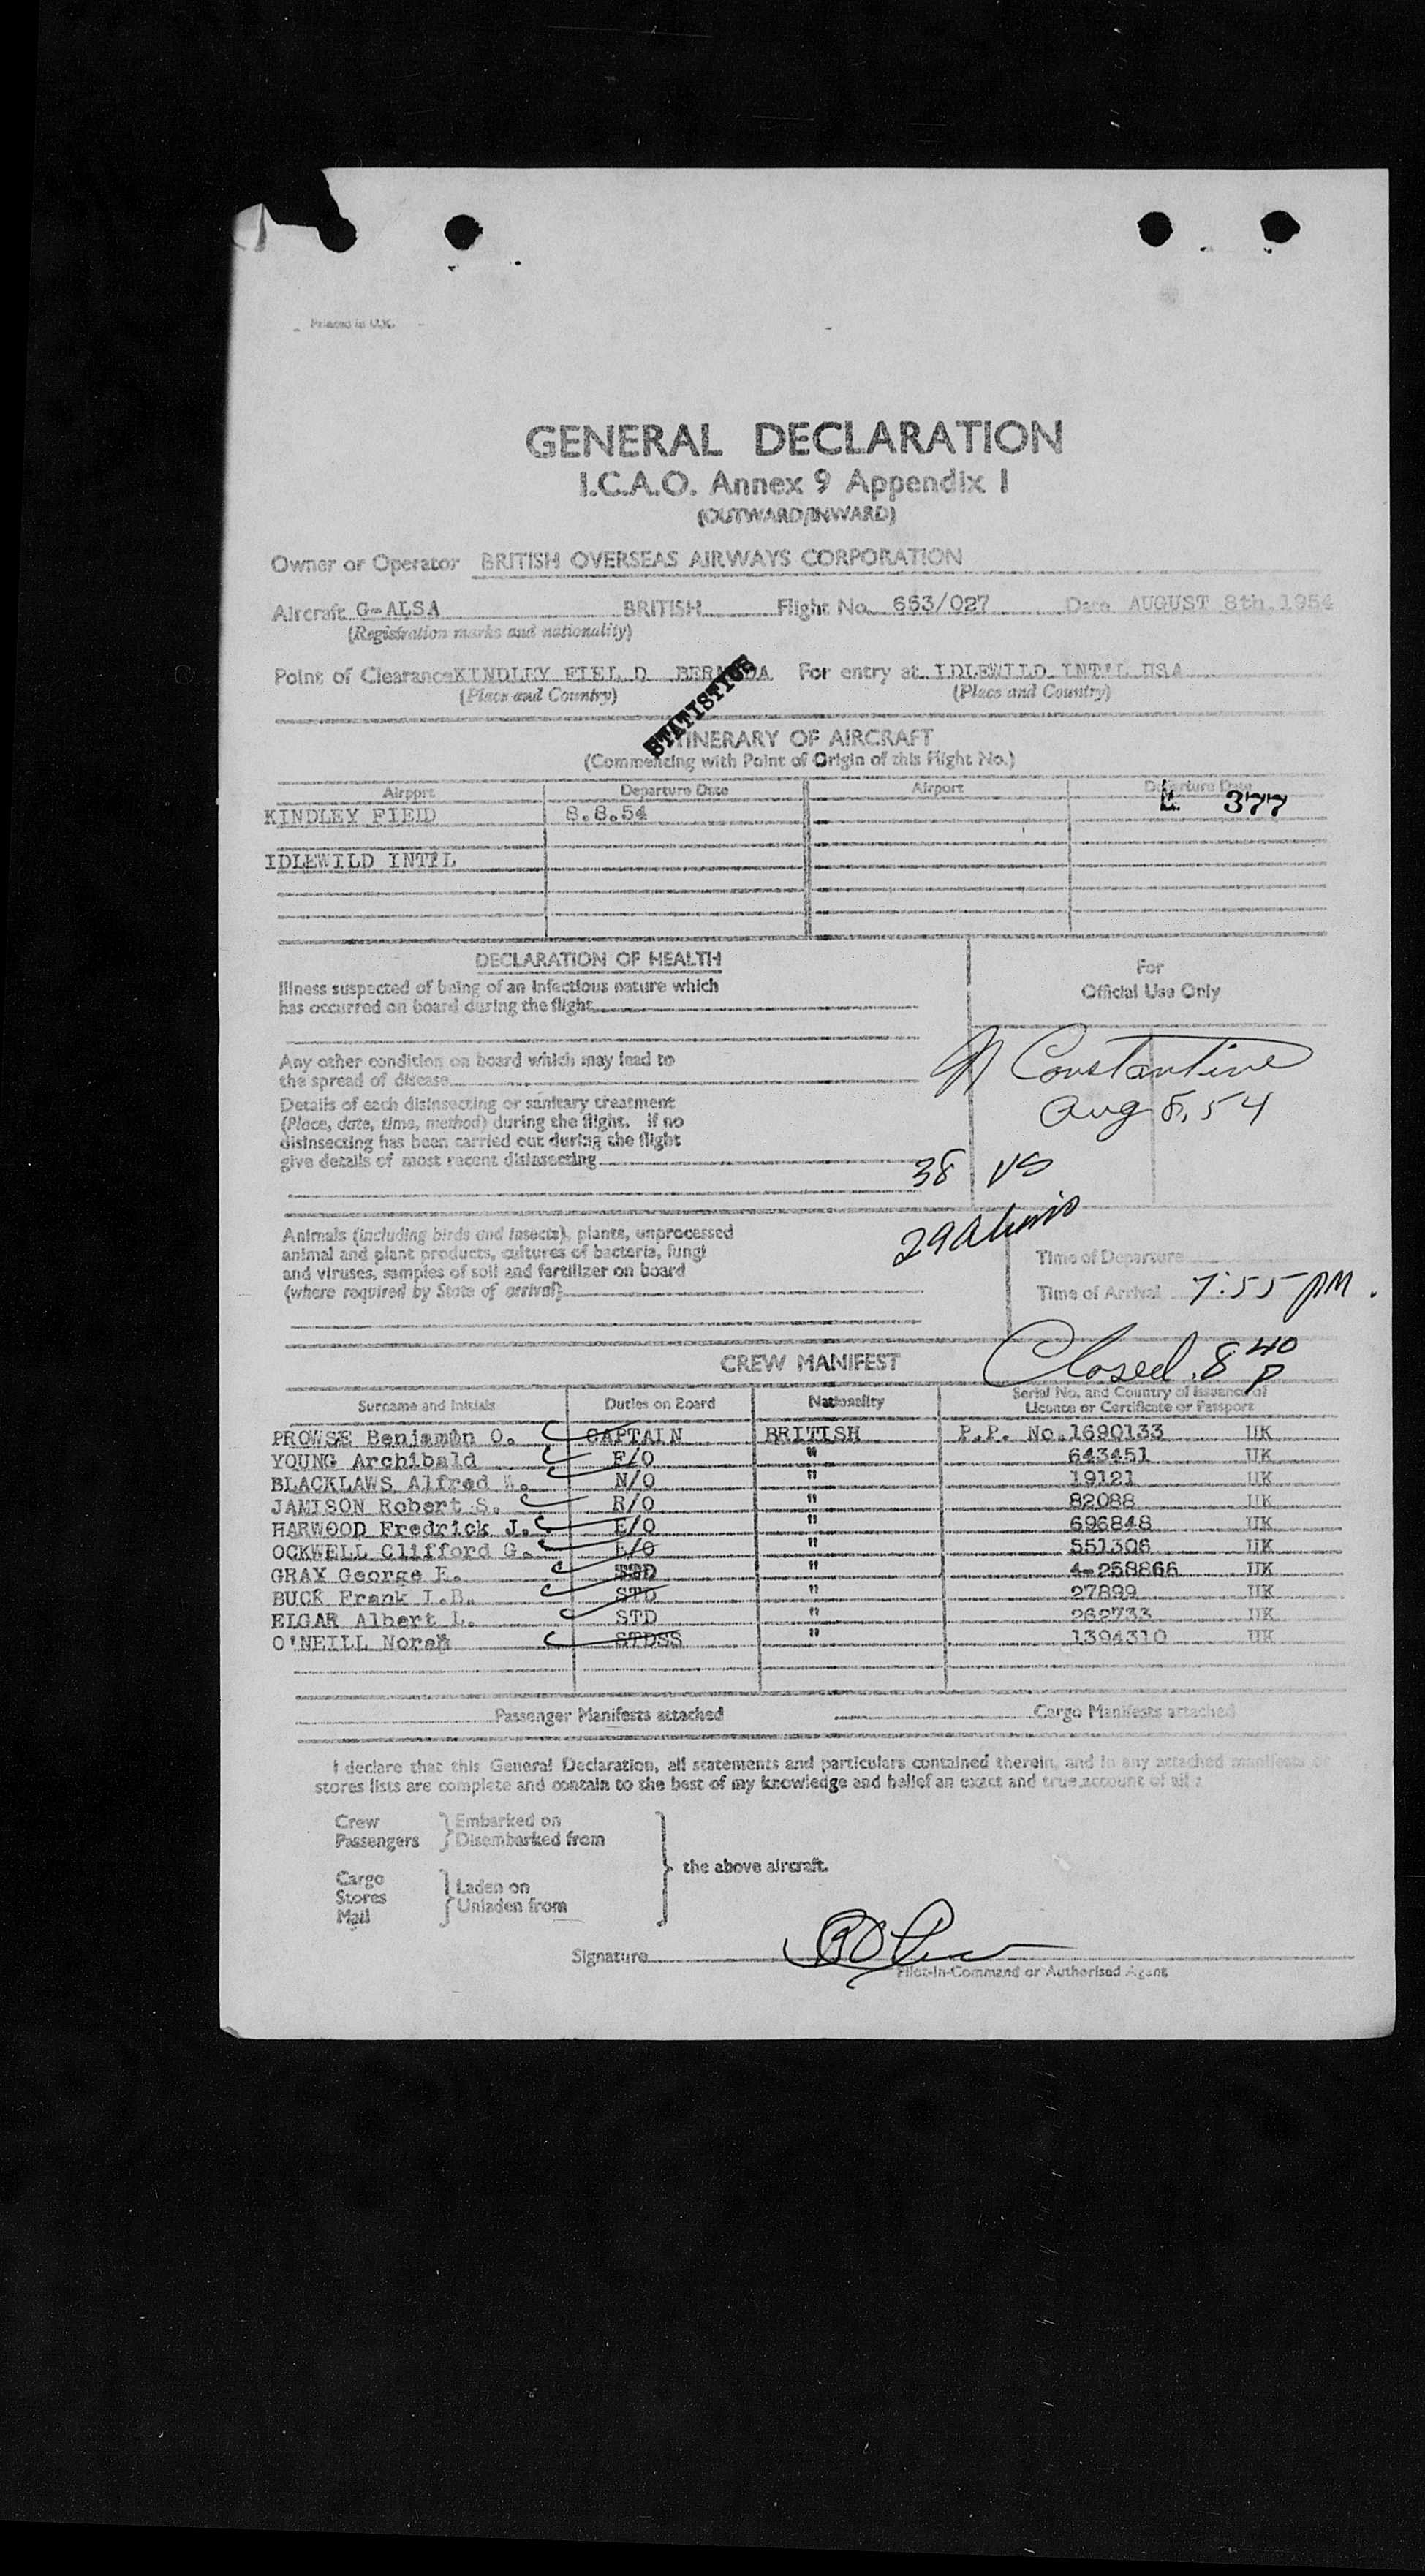 Printed in U.K.
GENERAL DECLARATION
I.C.A.O. Annex 9 Appendix 1
(OUTWARD/INWARD)
Owner or Operator BRITISH OVERSEAS AIRWAYS CORPORATION
Aircraft G-ALSA BRITISH Flight No. 663/027 Date AUGUST 8th.1954
(Registration marks and nationality)
Point of Clearance KINDLEY FIEL D BERMUDA For entry at IDLEWILD INT'L USA
(Place and Country) (Place and Country)
STATISTICS
ITINERARY OF AIRCRAFT
(Commencing with Point of Origin of this Flight No.)
Airport Departure Date Airport Departure Date
KINDLEY FIEID 8.8.54 377
IDLEWILD INT'L
DECLARATION OF HEALTH
For
Official Use Only
Illness suspected of being of an infectious nature which
has occurred on board during the flight
Any other condition on board which may lead to
the spread of disease
N Constantine
Aug 8, 54
Details of each disinsecting or sanitary treatment
(Place, date, time, method) during the flight. If no
disinsecting has been carried out during the flight
give details of most recent disinsecting
38 US
29 Aliens
Animals (including birds and insects), plants, unprocessed
animal and plant products, cultures of bacteria, fungi
and viruses, samples of soil and fertilizer on board
(where required by State of arrival)
Time of Departure
Time of Arrival 7:55 PM.
Closed 8 40 P
CREW MANIFEST
Surname and Initials Duties on Board Nationality Serial No. and Country of Issuance of
Licence or Certificate or Passport
PROWSE Benjamin O. CAPTAIN BRITISH P.P. No.1690133 UK
YOUNG Archibald F/O " 643451 UK
BLACKLAWS Alfred W. N/O " 19121 UK
JAMISON Robert S. R/O " 82088 UK
HARWOOD Fredrick J. E/O " 696848 UK
OCKWELL Clifford G. E/O " 551306 UK
GRAY George E. STD " 4-258866 UK
BUCK Frank I.B. STD " 27899 UK
ELGAR Albert L. STD " 262733 UK
O'NEILL Norah STDSS " 1394310 UK
Passenger Manifests attached Cargo Manifests attached
I declare that this General Declaration, all statements and particulars contained therein, and in any attached manifests or
stores lists are complete and contain to the best of my knowledge and belief an exact and true account of all :
Crew Embarked on
Passengers Disembarked from
the above aircraft.
Cargo
Stores Laden on
Mail Unladen from
Signature
Pilot-in-Command or Authorised Agent